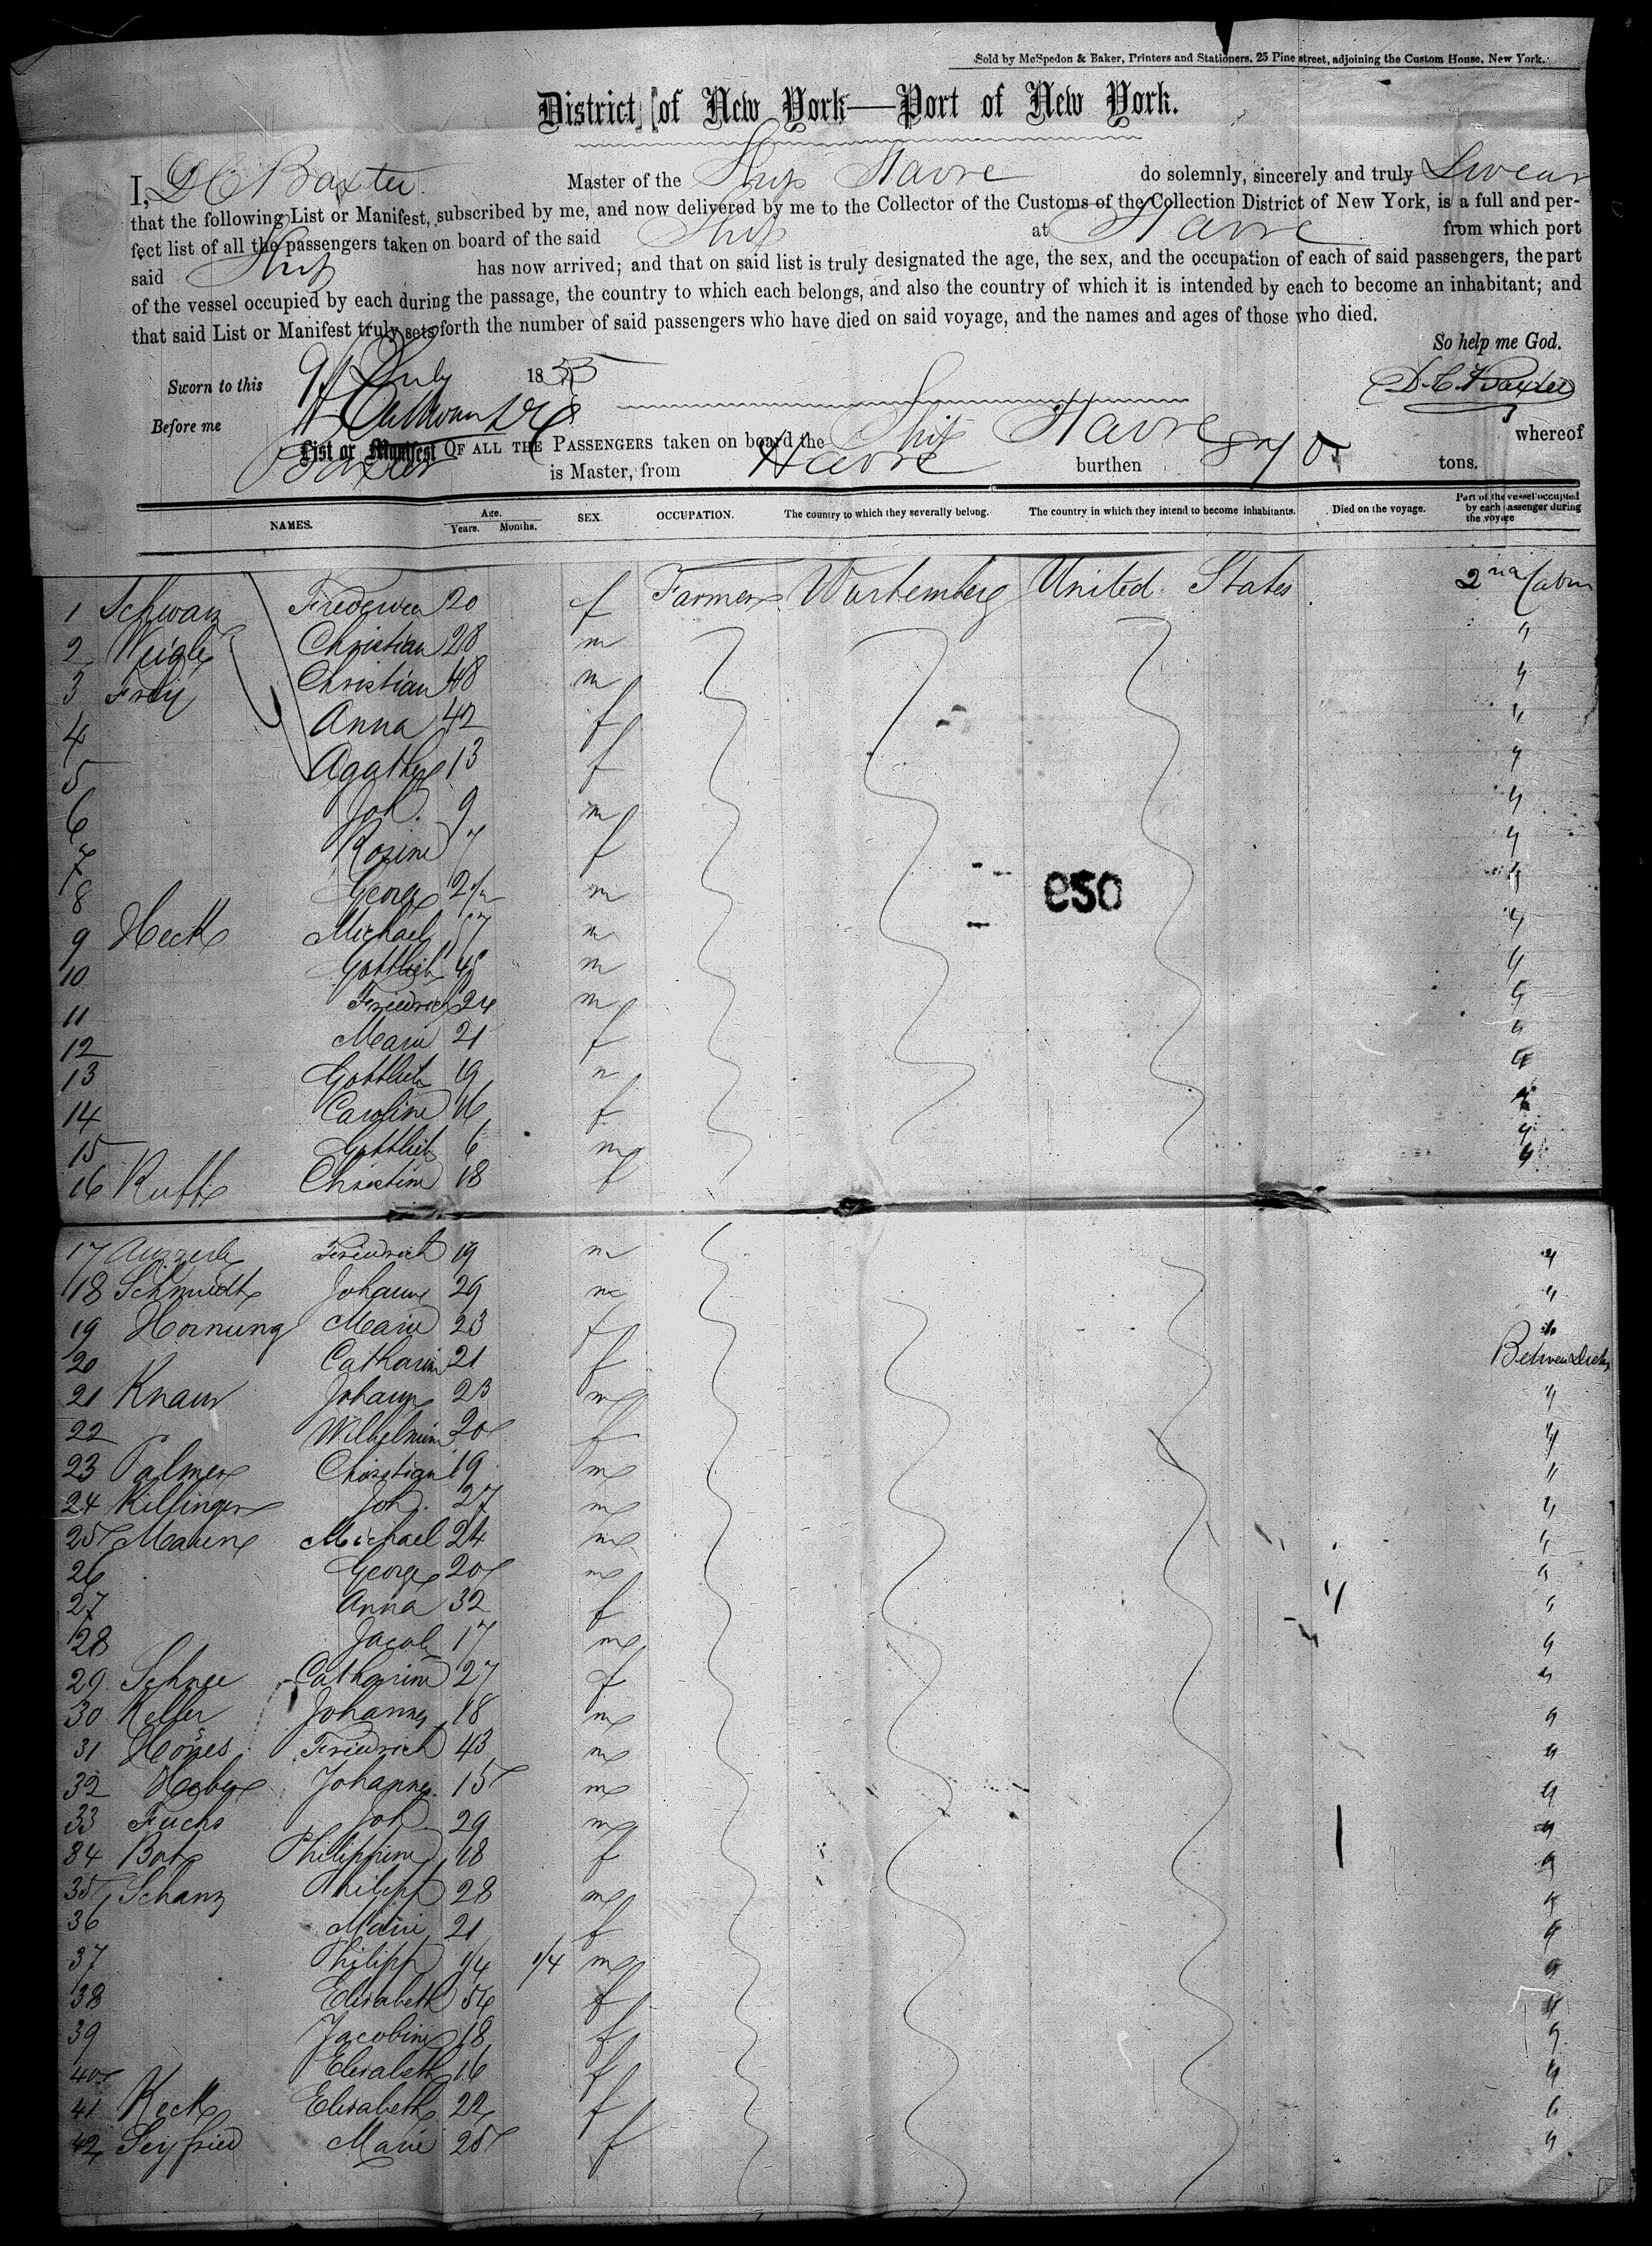 Sold by McSpedon & Baker, Printers and Stationers, 25 Pine street, adjoining the Custom House, New York.
District of New York—Port of New York.
I, D C Baxter Master of the Ship Havre do solemnly, sincerely and truly Swear
that the following List or Manifest, subscribed by me, and now delivered by me to the Collector of the Customs of the Collection District of New York, is a full and per-
fect list of all the passengers taken on board of the said Ship at Havre from which port
said Ship has now arrived; and that on said list is truly designated the age, the sex, and the occupation of each of said passengers, the part
of the vessel occupied by each during the passage, the country to which each belongs, and also the country of which it is intended by each to become an inhabitant; and
that said List or Manifest truly sets forth the number of said passengers who have died on said voyage, and the names and ages of those who died.
So help me God.
Sworn to this 9 July 1853 D. C. Baxter
Before me
List or Manifest OF ALL THE PASSENGERS taken on board the Ship Havre whereof
Baxter is Master, from Havre burthen 870 tons.
NAMES. Age. Years. Months. SEX. OCCUPATION. The country to which they severally belong. The country in which they intend to become inhabitants. Died on the voyage. Part of the vessel occupied by each passenger during the voyage
1 Schwarz 20 f Farmer Wurtemberg United States 2nd Cabin
2 Weigle Christian 28 m "
3 Frey Christian 48 m "
4 Anna 42 f "
5 Agathe 13 f "
6 Joh. 9 m "
7 Rosine 7 f "
8 George 2 1/2 m "
9 Heck Michael 57 m "
10 Gottlieb 45 m "
11 Friedrich 24 m "
12 Marie 21 f "
13 Gottlieb 19 m "
14 Caroline 16 f "
15 Gottlieb 6 m "
16 Ruff Christine 18 f "
17 Friedrich 19 m "
18 Schmidt Johann 29 m "
19 Hornung Marie 23 f "
20 Catharine 21 f Between Decks
21 Knaur Johann 23 m "
22 Wilhelmine 20 f "
23 Palmer Christian 19 m "
24 Killinger Joh. 27 m "
25 Michael 24 m "
26 George 20 m "
27 Anna 32 f "
28 Jacob 17 m "
29 Catharine 27 f "
30 Keller Johannes 18 m "
31 Friedrich 43 m "
32 Johannes 15 m "
33 Fuchs Joh 29 m "
34 Philippine 18 f "
35 Schanz Philipp 28 m "
36 Marie 21 f "
37 Philipp 1/4 1/4 m "
38 Elisabeth 54 f "
39 Jacobine 18 f "
40 Elisabeth 16 f "
41 Keck Elisabeth 22 f "
42 Seyfried Marie 25 f "